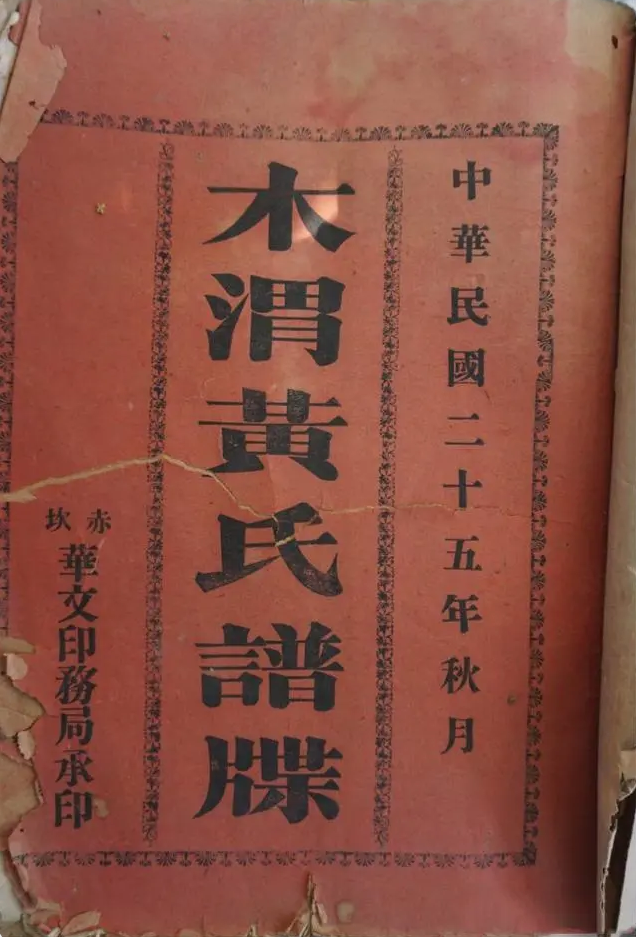 中華民國二十五年秋月
木渭黃氏譜牒
赤坎
華文印務局承印